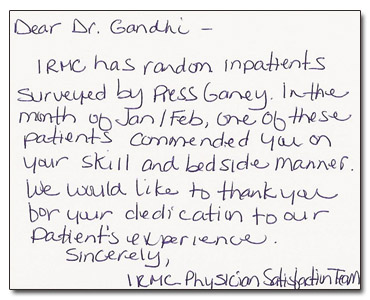 Dear Dr. Gandhi -
IRMC has random inpatients
surveyed by Press Ganey. In the
month of Jan/Feb, one of these
patients commended you on
your skill and bedside manner.
We would like to thank you
for your dedication to our
patient's experience.
Sincerely,
IRMC Physician Satisfaction Team